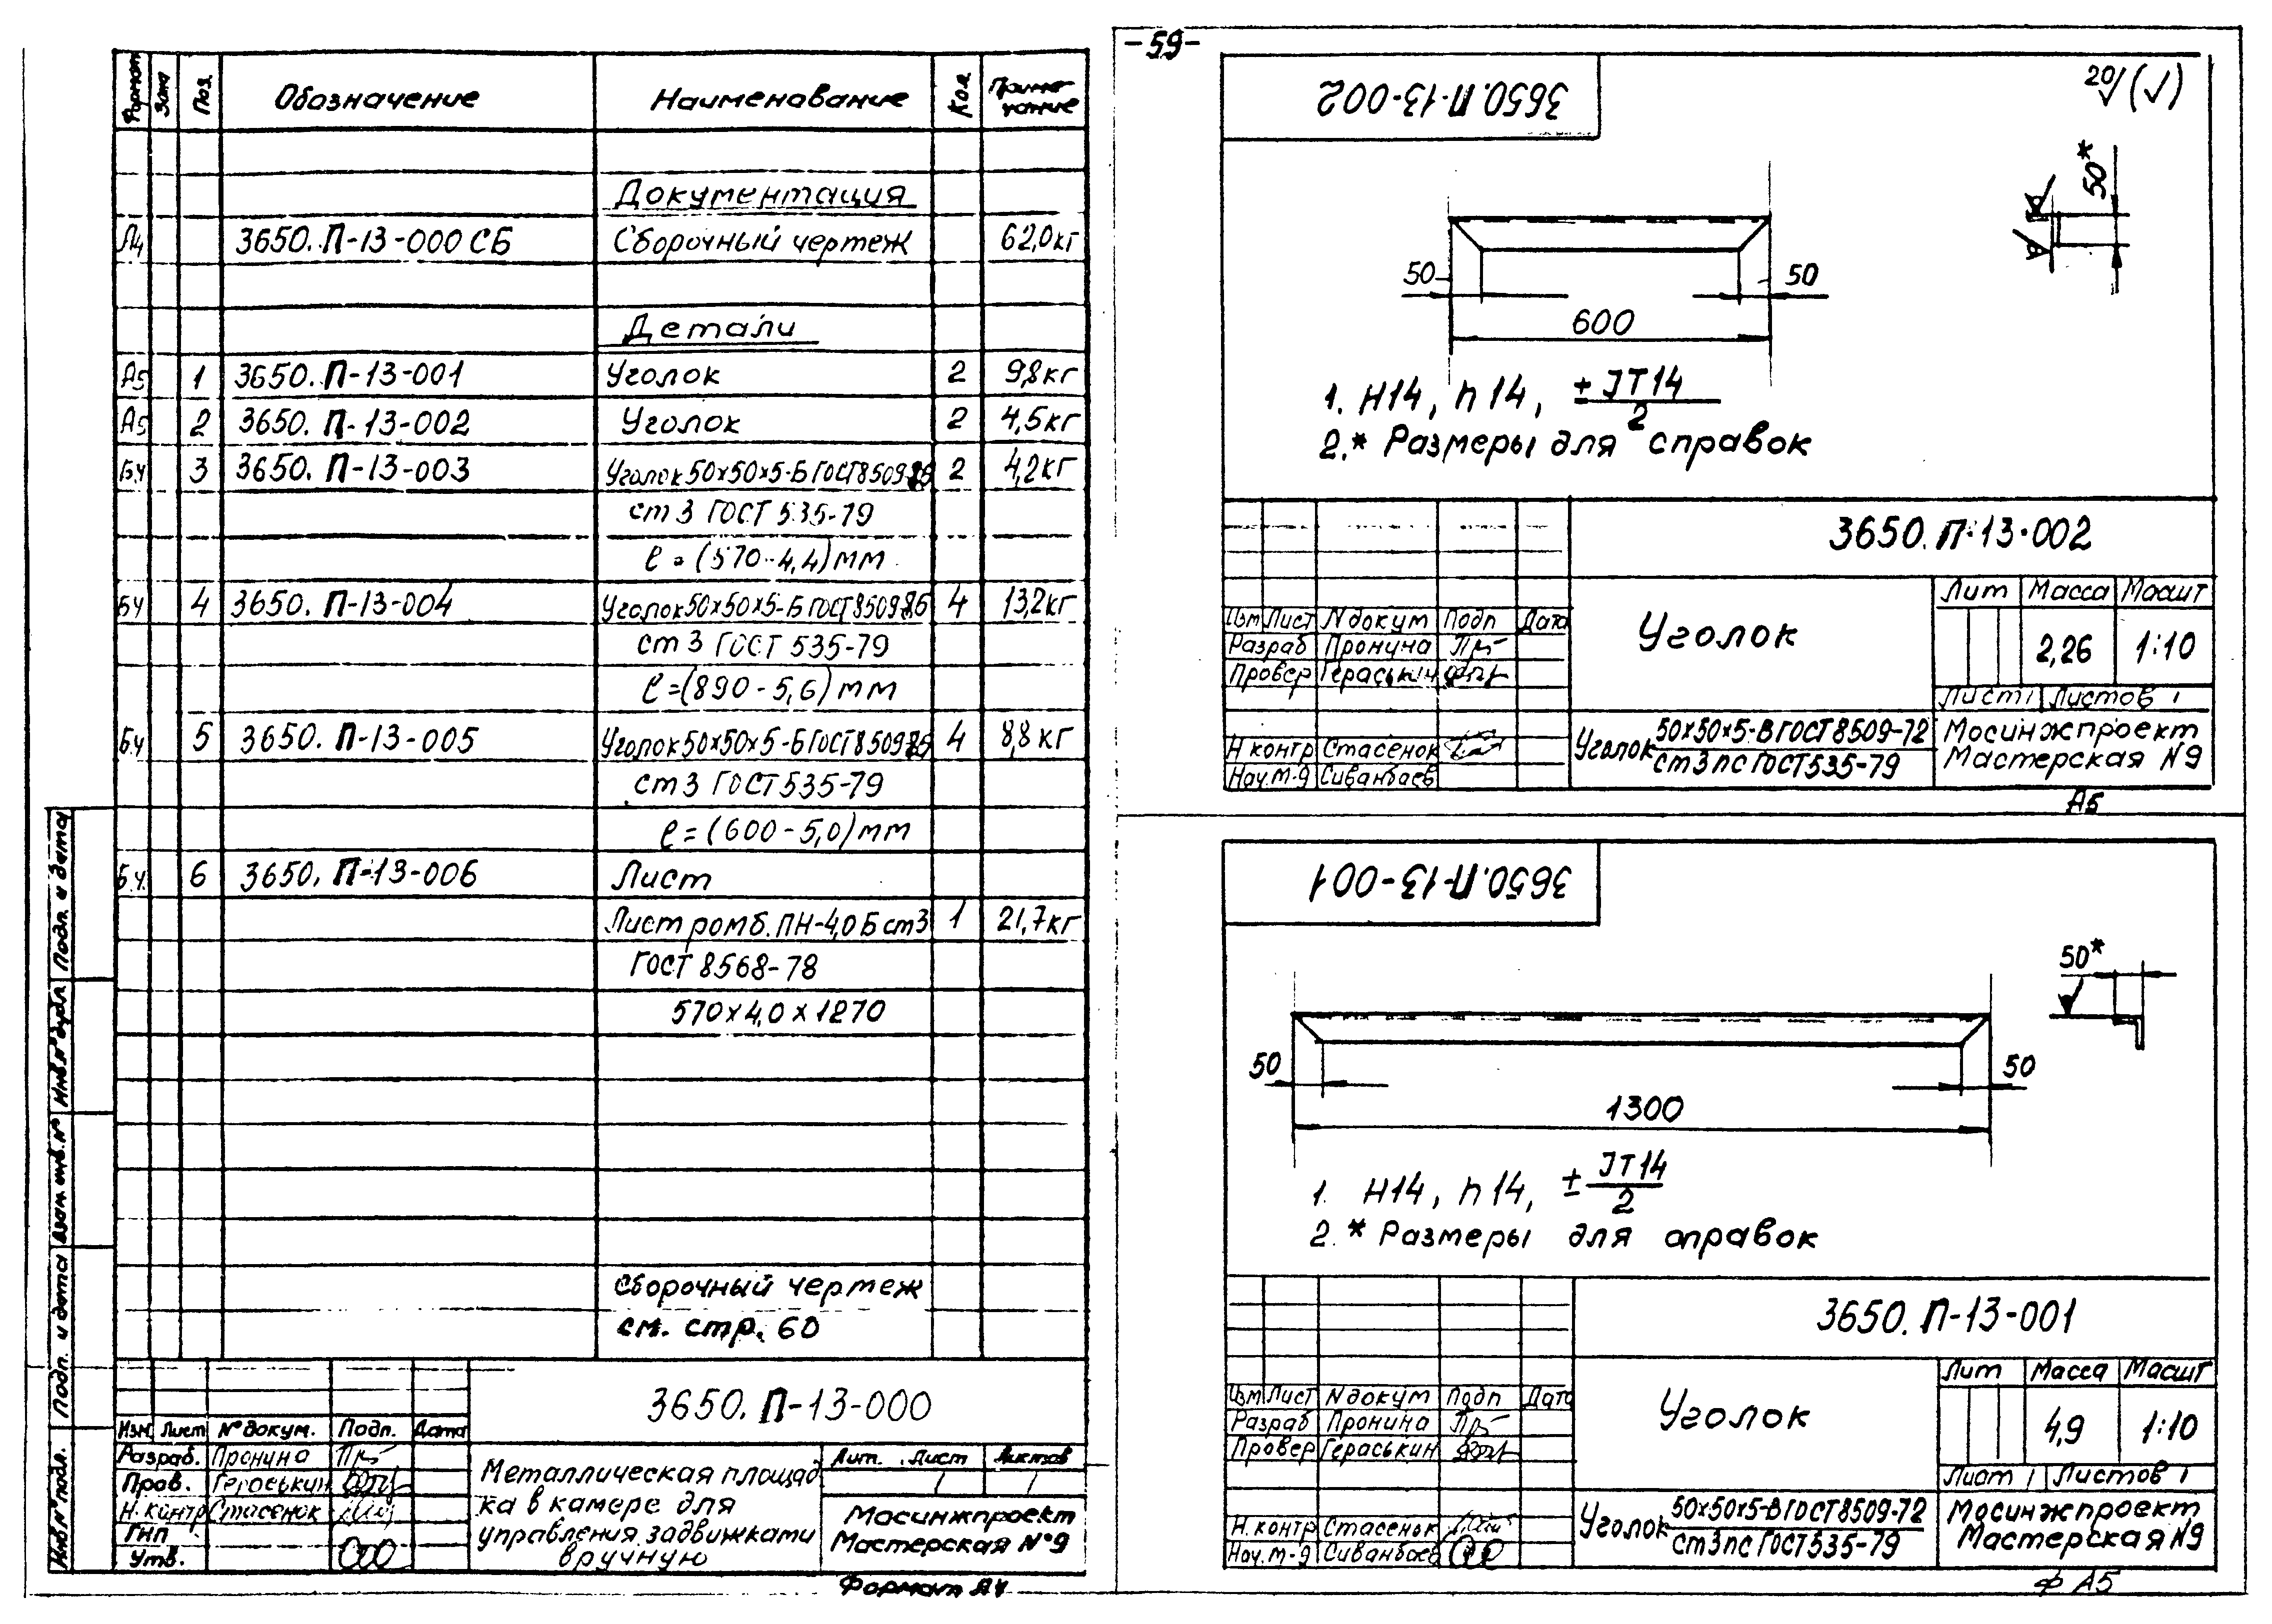 -59-
Формат Зона Поз. Обозначение Наименование Кол. Примечание
Документация
А4 3650.П-13-000 СБ Сборочный чертеж 62,0кг
Детали
А5 1 3650.П-13-001 Уголок 2 9,8кг
А5 2 3650.П-13-002 Уголок 2 4,5кг
Б.ч 3 3650.П-13-003 Уголок 50х50х5-Б ГОСТ 8509-86 2 4,2кг
ст 3 ГОСТ 535-79
ℓ = (570-4,4) мм
Б.ч 4 3650.П-13-004 Уголок 50х50х5-Б ГОСТ 8509-86 4 13,2кг
ст 3 ГОСТ 535-79
ℓ = (890-5,6) мм
Б.ч 5 3650.П-13-005 Уголок 50х50х5-Б ГОСТ 8509-86 4 8,8кг
ст 3 ГОСТ 535-79
ℓ = (600-5,0) мм
Б.ч. 6 3650.П-13-006 Лист
Лист ромб. ПН-4,0 Б ст3 1 21,7кг
ГОСТ 8568-78
570х4,0х1270
Сборочный чертеж
см. стр. 60
Инв.№подл. Подп. и дата Взам. инв.№ Инв.№дубл. Подп. и дата
3650.П-13-000
Изм. Лист № докум. Подп. Дата
Разраб. Пронина
Пров. Гераськин
Н.контр Стасенок
ГИП
Утв.
Металлическая площад
ка в камере для
управления задвижками
вручную
Лит. Лист Листов
1 1
Мосинжпроект
Мастерская №9
Формат А4
3650.П-13-002
20√(√)
50*
50 50
600
1. Н14, h14, ± JT14/2
2.* Размеры для справок
3650.П-13-002
Изм Лист N докум Подп Дата
Разраб Пронина
Провер Гераськин
Н контр Стасенок
Нач.М-9 Сиванбаев
Уголок
Лит Масса Масшт
2,26 1:10
Лист 1 Листов 1
Уголок 50х50х5-В ГОСТ 8509-72
ст3пс ГОСТ 535-79
Мосинжпроект
Мастерская N9
А5
3650.П-13-001
50*
50 50
1300
1. Н14, h14, ± JT14/2
2.* Размеры для справок
3650.П-13-001
Изм Лист N докум Подп Дата
Разраб Пронина
Провер Гераськин
Н.контр Стасенок
Нач.М-9 Сиванбаев
Уголок
Лит Масса Масшт
4,9 1:10
Лист 1 Листов 1
Уголок 50х50х5-В ГОСТ 8509-72
ст3пс ГОСТ 535-79
Мосинжпроект
Мастерская N9
Ф А5